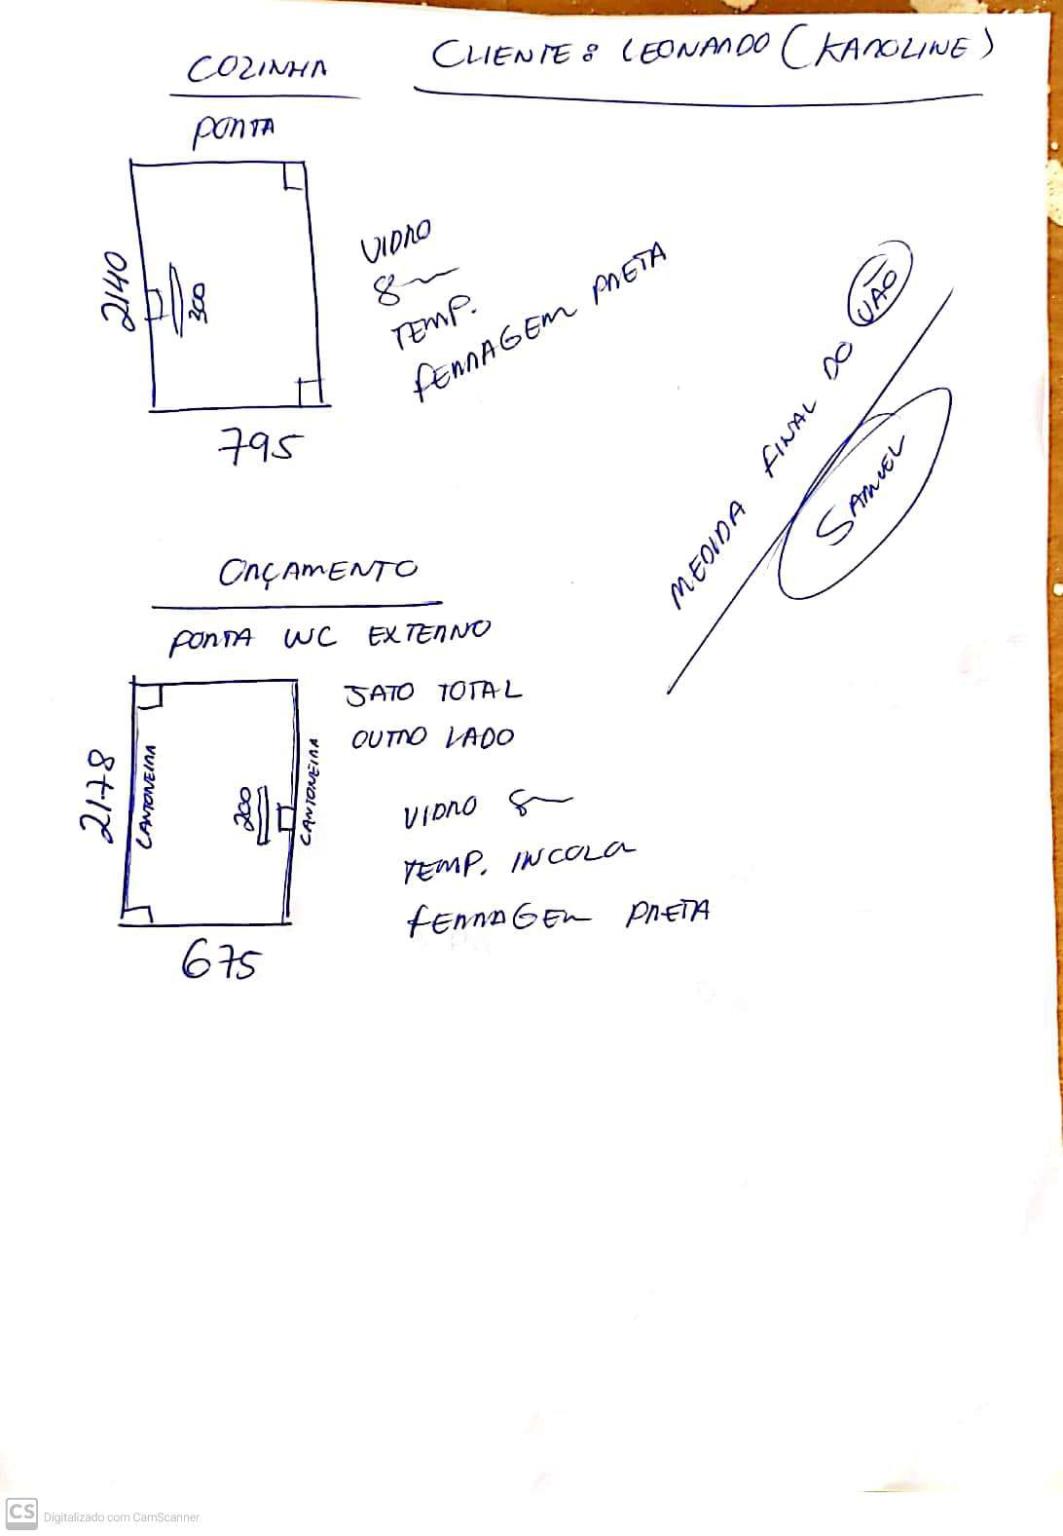 COZINHA
CLIENTE: LEONARDO (KAROLINE)
PORTA
2140
300
795
VIDRO
8
TEMP.
FERRAGEM PRETA
MEDIDA FINAL DO VÃO
SAMUEL
ORÇAMENTO
PORTA WC EXTERNO
2178
CANTONEIRA
200
CANTONEIRA
675
JATO TOTAL
OUTRO LADO
VIDRO 8
TEMP. INCOLOR
FERRAGEM PRETA
CS Digitalizado com CamScanner